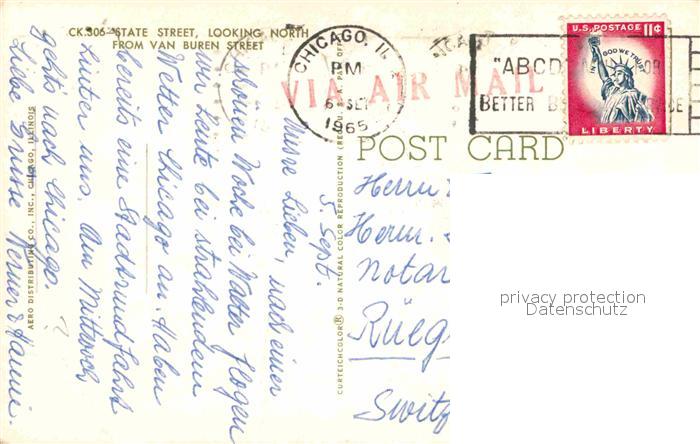 CK.306—STATE STREET, LOOKING NORTH
FROM VAN BUREN STREET
5. Sept.
Meine Lieben, nach einer
schönen Woche bei Walter flogen
wir heute bei strahlendem
Wetter Chicago an. Haben
bereits eine Stadtrundfahrt
hinter uns. Am Mittwoch
geht's nach Chicago.
Liebe Grüsse Werner & Hanni.
AERO DISTRIBUTING CO., INC., CHICAGO, ILLINOIS
CURTEICHCOLOR® 3-D NATURAL COLOR REPRODUCTION (REG. U.S.A. PAT. OFF.)
CHICAGO, IL
PM
6 SEP
1965
VIA AIR MAIL
"ABCD
BETTER
U.S. POSTAGE 11¢
IN GOD WE TRUST
LIBERTY
POST CARD
Herrn
Herm.
Notar
Rüeg
Switz
privacy protection
Datenschutz